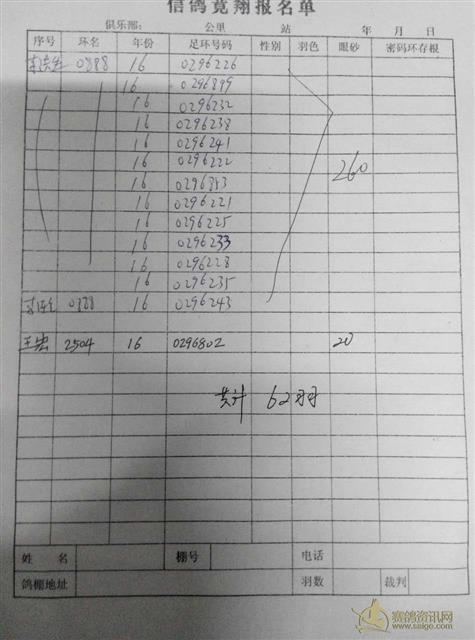 信鸽竞翔报名单
俱乐部： 公里 站 年 月 日
序号 环名 年份 足环号码 性别 羽色 眼砂 密码环存根
0388 16 0296226
16 0296899
16 0296232
16 0296238
16 0296241
16 0296222
260
16 0296
16 0296221
16 0296225
16 0296233
16 0296228
16 0296235
0388 16 0296243
王宏 2504 16 0296802 20
共计 62羽
姓名 棚号 电话
鸽棚地址 羽数 裁判
赛鸽资讯网
www.saige.com